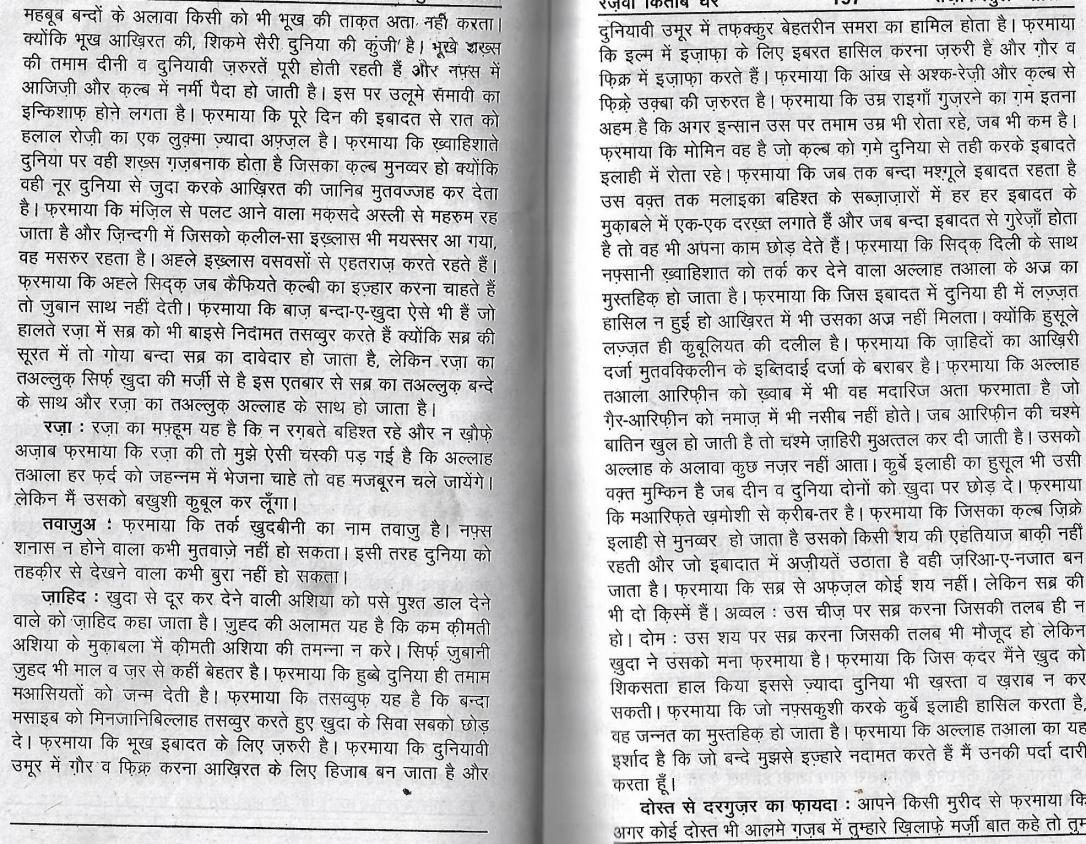 महबूब बन्दों के अलावा किसी को भी भूख की ताक़त अता नहीं करता।
क्योंकि भूख आखिरत की, शिकमे सैरी दुनिया की कुंजी है। भूखे शख़्स
की तमाम दीनी व दुनियावी ज़रुरतें पूरी होती रहती हैं और नफ़्स में
आजिज़ी और क़ल्ब में नर्मी पैदा हो जाती है। इस पर उलूमे समावी का
इन्किशाफ़ होने लगता है। फ़रमाया कि पूरे दिन की इबादत से रात को
हलाल रोज़ी का एक लुक़्मा ज़्यादा अफ़्ज़ल है। फ़रमाया कि ख़्वाहिशाते
दुनिया पर वही शख़्स ग़ज़बनाक होता है जिसका क़ल्ब मुनव्वर हो क्योंकि
वही नूर दुनिया से जुदा करके आख़िरत की जानिब मुतवज्जह कर देता
है। फ़रमाया कि मंज़िल से पलट आने वाला मक़सदे अस्ली से महरुम रह
जाता है और ज़िन्दगी में जिसको क़लील-सा इख़्लास भी मयस्सर आ गया,
वह मसरुर रहता है। अह्ले इख़्लास वसवसों से एहतराज़ करते रहते हैं।
फ़रमाया कि अह्ले सिद्क़ जब कैफियते क़ल्बी का इज़्हार करना चाहते हैं
तो जुबान साथ नहीं देती। फ़रमाया कि बाज़ बन्दा-ए-ख़ुदा ऐसे भी हैं जो
हालते रज़ा में सब्र को भी बाइसे निदामत तसव्वुर करते हैं क्योंकि सब्र की
सूरत में तो गोया बन्दा सब्र का दावेदार हो जाता है, लेकिन रज़ा का
तअल्लुक़ सिर्फ़ ख़ुदा की मर्ज़ी से है इस एतबार से सब्र का तअल्लुक़ बन्दे
के साथ और रज़ा का तअल्लुक़ अल्लाह के साथ हो जाता है।
रज़ा : रज़ा का मफ़्हूम यह है कि न रग़बते बहिश्त रहे और न ख़ौफे
अज़ाब फ़रमाया कि रज़ा की तो मुझे ऐसी चस्की पड़ गई है कि अल्लाह
तआला हर फ़र्द को जहन्नम में भेजना चाहे तो वह मजबूरन चले जायेंगे।
लेकिन मैं उसको बखुशी कुबूल कर लूँगा।
तवाजुअ : फ़रमाया कि तर्क ख़ुदबीनी का नाम तवाजु है। नफ़्स
शनास न होने वाला कभी मुतवाज़े नहीं हो सकता। इसी तरह दुनिया को
तहक़ीर से देखने वाला कभी बुरा नहीं हो सकता।
ज़ाहिद : ख़ुदा से दूर कर देने वाली अशिया को पसे पुश्त डाल देने
वाले को ज़ाहिद कहा जाता है। ज़ुह्द की अलामत यह है कि कम क़ीमती
अशिया के मुक़ाबला में क़ीमती अशिया की तमन्ना न करे। सिर्फ़ ज़ुबानी
ज़ुहद भी माल व ज़र से कहीं बेहतर है। फ़रमाया कि हुब्बे दुनिया ही तमाम
मआसियतों को जन्म देती है। फ़रमाया कि तसव्वुफ़ यह है कि बन्दा
मसाइब को मिनजानिबिल्लाह तसव्वुर करते हुए ख़ुदा के सिवा सबको छोड़
दे। फ़रमाया कि भूख इबादत के लिए ज़रुरी है। फ़रमाया कि दुनियावी
उमूर में ग़ौर व फ़िक्र करना आख़िरत के लिए हिजाब बन जाता है और
रज़वी किताब घर
दुनियावी उमूर में तफ़क्कुर बेहतरीन समरा का हामिल होता है। फ़रमाया
कि इल्म में इज़ाफ़ा के लिए इबरत हासिल करना ज़रुरी है और ग़ौर व
फ़िक्र में इज़ाफ़ा करते हैं। फ़रमाया कि आंख से अश्क-रेज़ी और क़ल्ब से
फ़िक्रे उक़्बा की ज़रुरत है। फ़रमाया कि उम्र राइगाँ गुज़रने का ग़म इतना
अहम है कि अगर इन्सान उस पर तमाम उम्र भी रोता रहे, जब भी कम है।
फ़रमाया कि मोमिन वह है जो क़ल्ब को ग़मे दुनिया से तही करके इबादते
इलाही में रोता रहे। फ़रमाया कि जब तक बन्दा मश्ग़ूले इबादत रहता है
उस वक़्त तक मलाइका बहिश्त के सब्ज़ाज़ारों में हर हर इबादत के
मुक़ाबले में एक-एक दरख़्त लगाते हैं और जब बन्दा इबादत से गुरेज़ाँ होता
है तो वह भी अपना काम छोड़ देते हैं। फ़रमाया कि सिद्क़ दिली के साथ
नफ़्सानी ख़्वाहिशात को तर्क कर देने वाला अल्लाह तआला के अज्र का
मुस्तहिक़ हो जाता है। फ़रमाया कि जिस इबादत में दुनिया ही में लज़्ज़त
हासिल न हुई हो आख़िरत में भी उसका अज्र नहीं मिलता। क्योंकि हुसूले
लज़्ज़त ही कुबूलियत की दलील है। फ़रमाया कि ज़ाहिदों का आख़िरी
दर्जा मुतवक्किलीन के इब्तिदाई दर्जा के बराबर है। फ़रमाया कि अल्लाह
तआला आरिफ़ीन को ख़्वाब में भी वह मदारिज अता फरमाता है जो
ग़ैर-आरिफ़ीन को नमाज़ में भी नसीब नहीं होते। जब आरिफीन की चश्मे
बातिन खुल हो जाती है तो चश्मे ज़ाहिरी मुअत्तल कर दी जाती है। उसको
अल्लाह के अलावा कुछ नज़र नहीं आता। क़ुर्बे इलाही का हुसूल भी उसी
वक़्त मुम्किन है जब दीन व दुनिया दोनों को ख़ुदा पर छोड़ दे। फ़रमाया
कि मआरिफ़ते ख़मोशी से क़रीब-तर है। फ़रमाया कि जिसका क़ल्ब ज़िक्रे
इलाही से मुनव्वर हो जाता है उसको किसी शय की एहतियाज बाक़ी नहीं
रहती और जो इबादात में अज़ीयतें उठाता है वही ज़रिआ-ए-नजात बन
जाता है। फ़रमाया कि सब्र से अफ्ज़ल कोई शय नहीं। लेकिन सब्र की
भी दो क़िस्में हैं। अव्वल : उस चीज़ पर सब्र करना जिसकी तलब ही न
हो। दोम : उस शय पर सब्र करना जिसकी तलब भी मौजूद हो लेकिन
ख़ुदा ने उसको मना फ़रमाया है। फ़रमाया कि जिस क़दर मैंने ख़ुद को
शिकसता हाल किया इससे ज़्यादा दुनिया भी ख़स्ता व ख़राब न कर
सकती। फ़रमाया कि जो नफ़्सकुशी करके क़ुर्बे इलाही हासिल करता है,
वह जन्नत का मुस्तहिक़ हो जाता है। फ़रमाया कि अल्लाह तआला का यह
इर्शाद है कि जो बन्दे मुझसे इज़्हारे नदामत करते हैं मैं उनकी पर्दा दारी
करता हूँ।
दोस्त से दरगुज़र का फ़ायदा : आपने किसी मुरीद से फ़रमाया कि
अगर कोई दोस्त भी आलमे ग़ज़ब में तुम्हारे ख़िलाफ़े मर्ज़ी बात कहे तो तुम